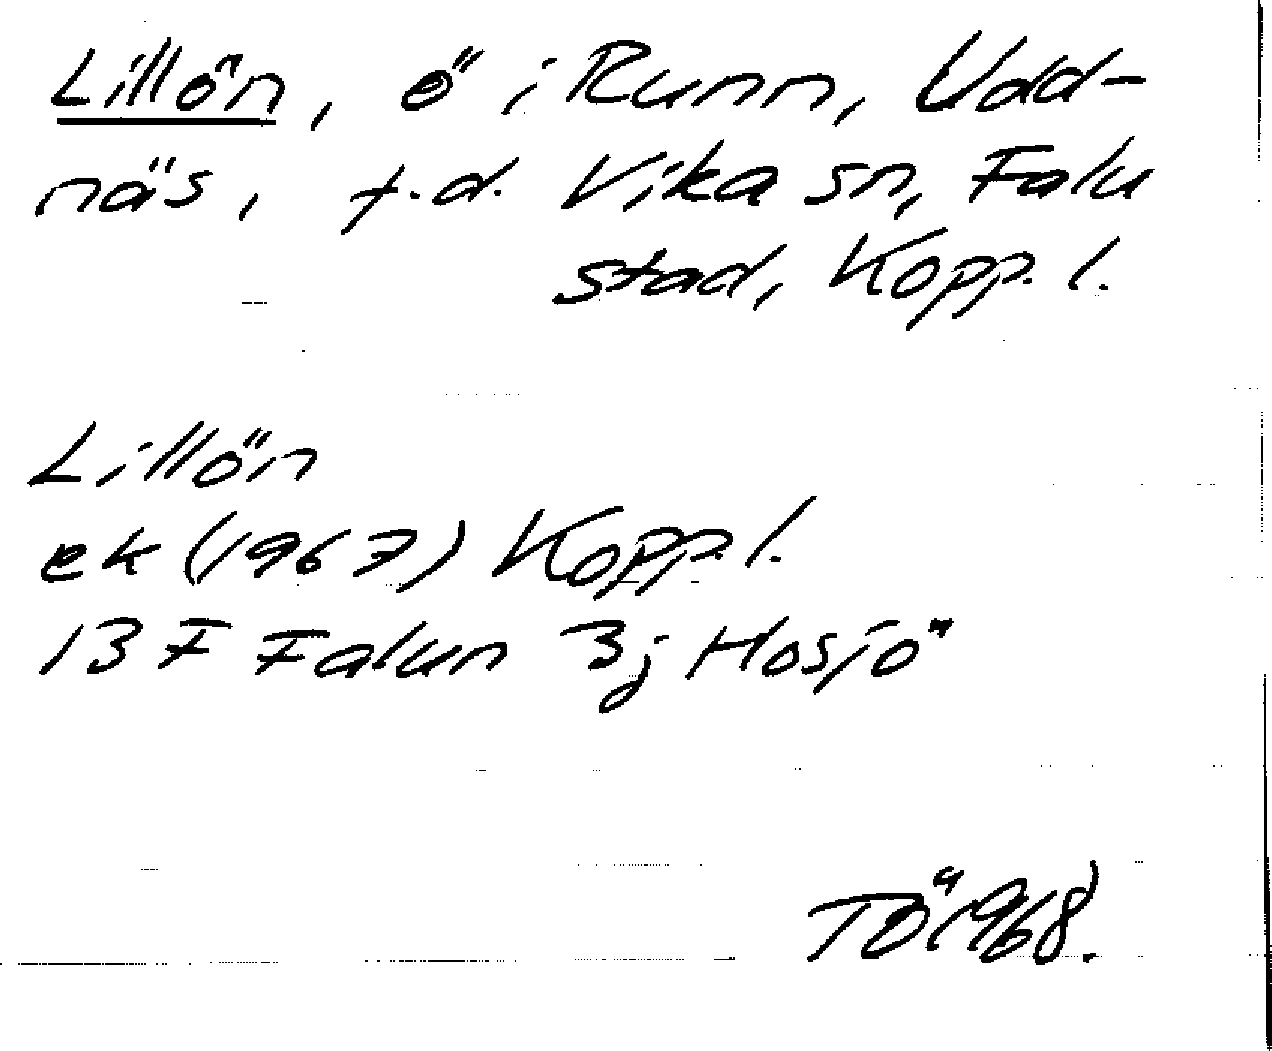 Lillön, ö i Runn, Udd-
näs, f.d. Vika sn, Falu
stad, Kopp. l.
Lillön
ek (1967) Kopp. l.
13 F Falun 3j Hosjö
TÖ 1968.